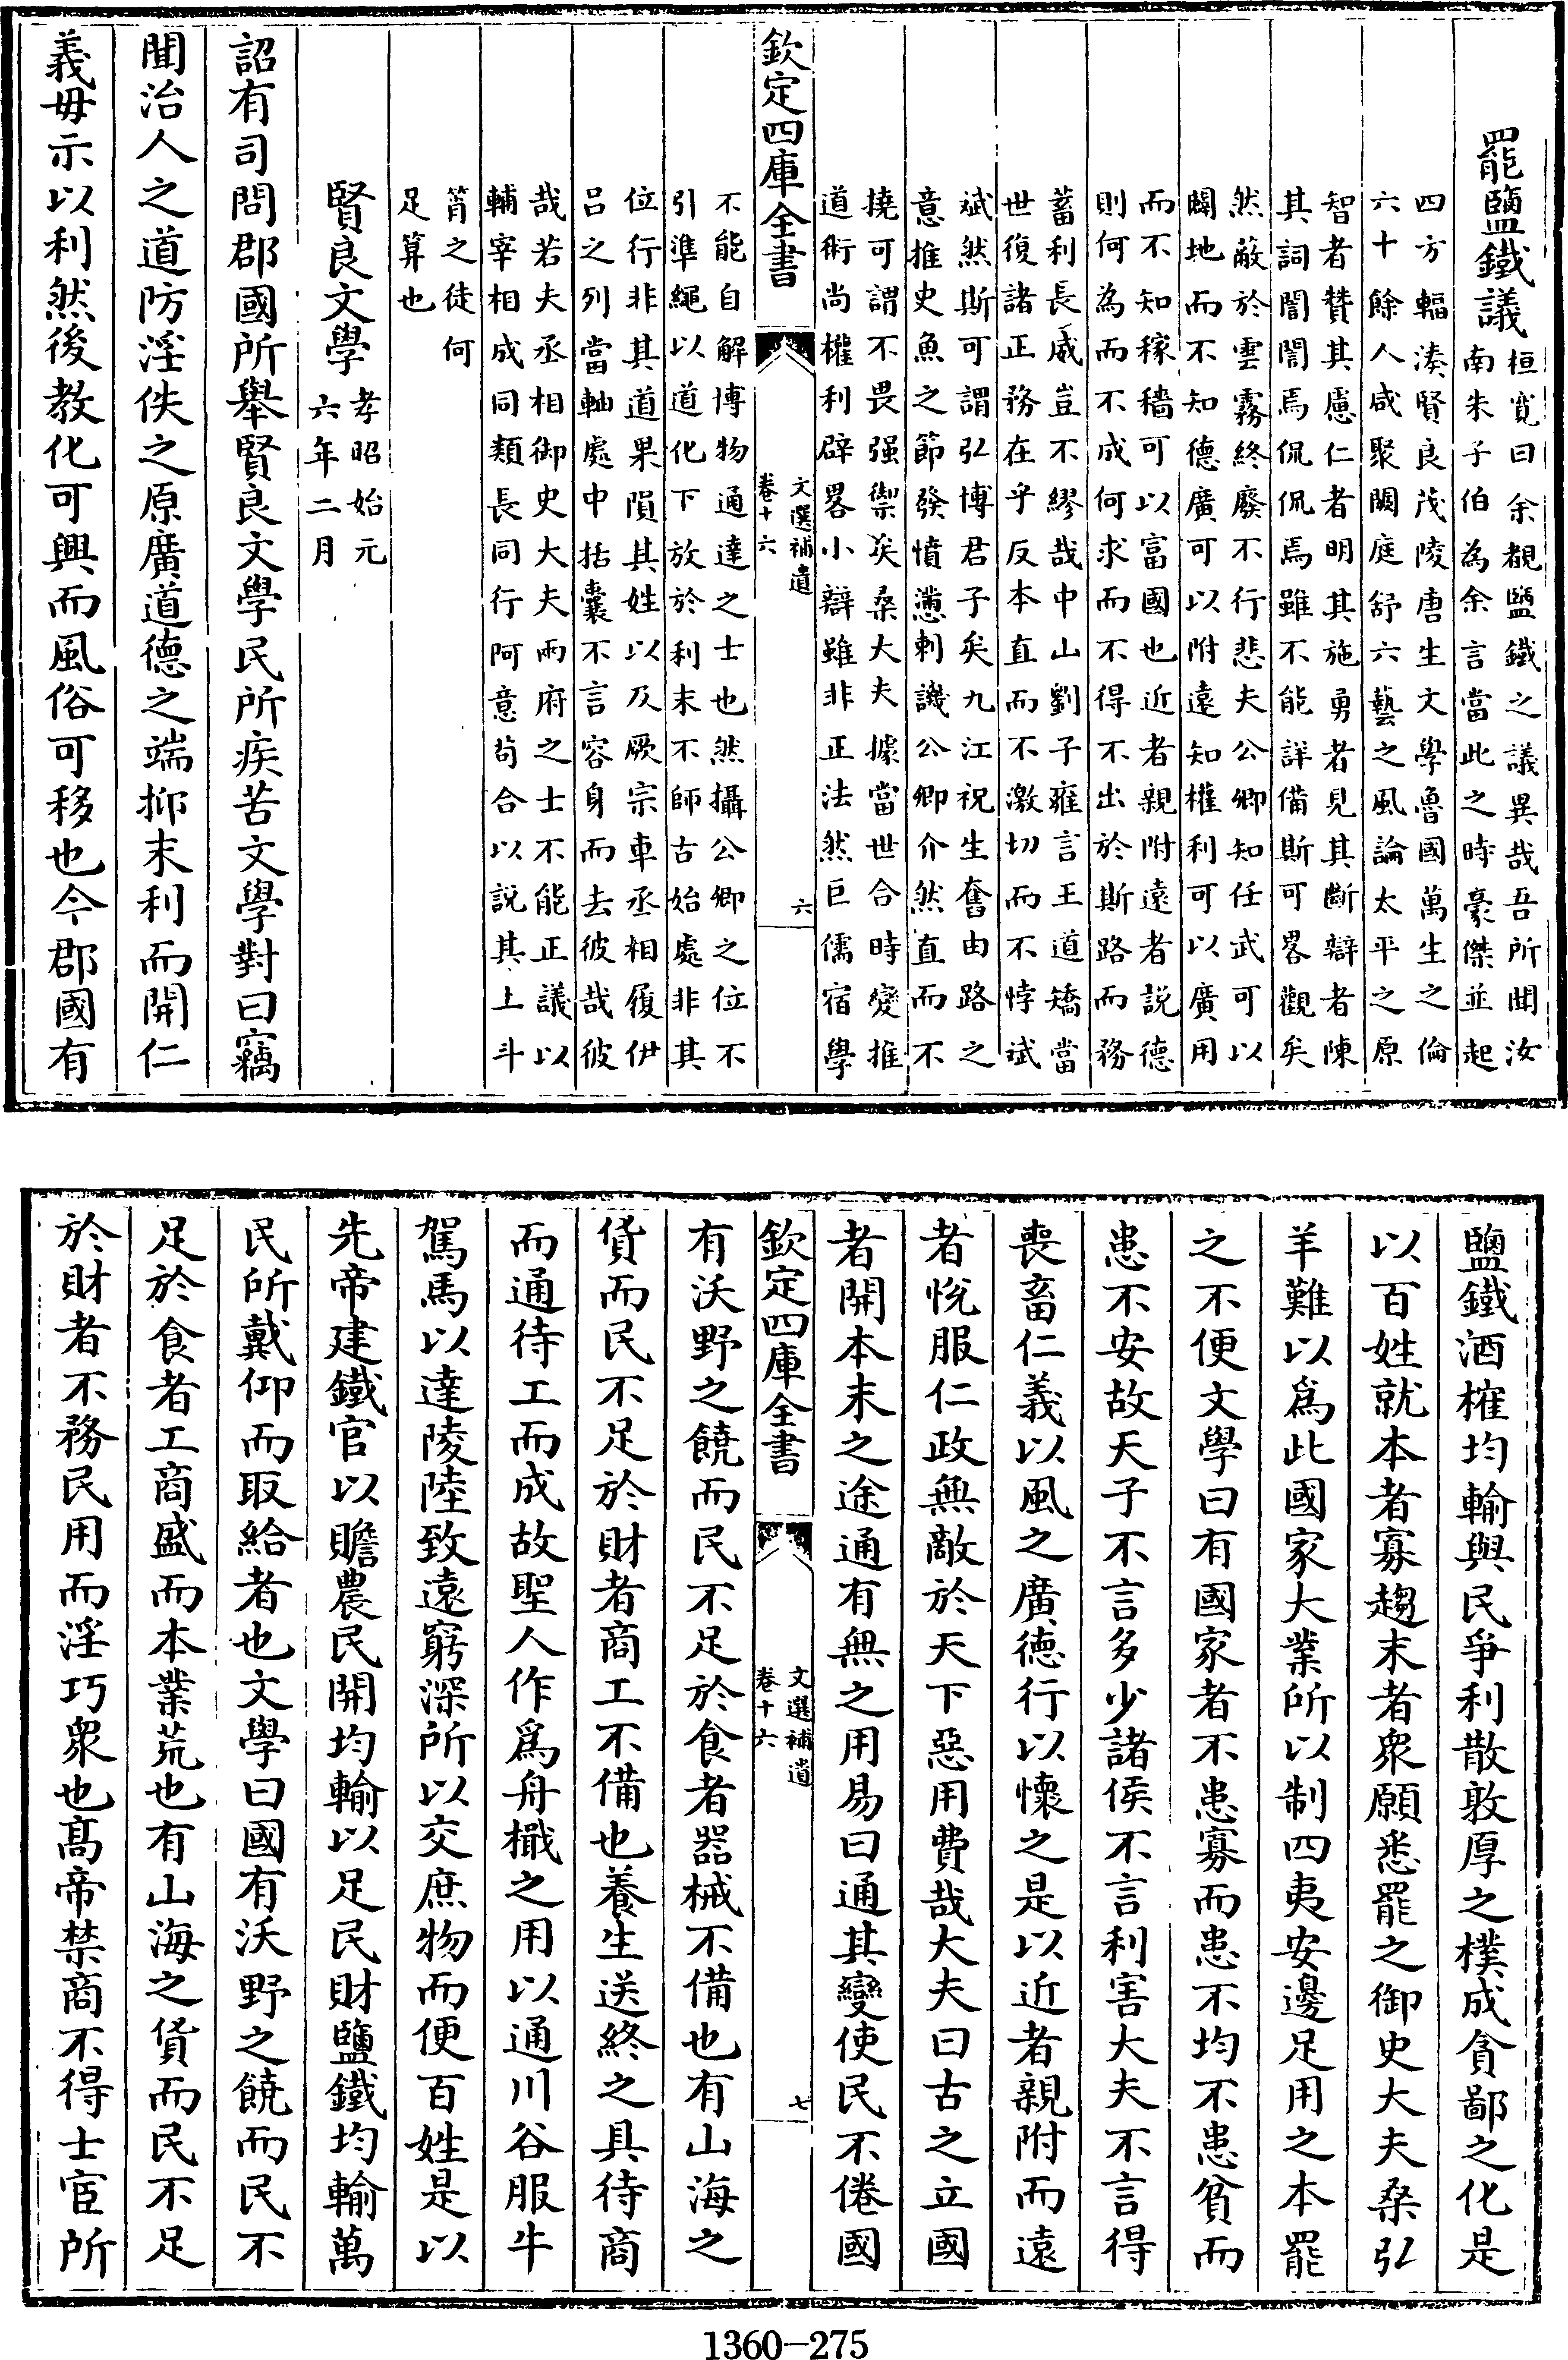 罷鹽鐵議桓寛曰余覩鹽鐵之議異哉吾所聞汝
南朱子伯為余言當此之時豪傑並起
四方輻湊賢良茂陵唐生文學魯國萬生之倫
六十餘人咸聚闕庭舒六藝之風論太平之原
智者賛其慮仁者明其施勇者見其斷辯者陳
其詞誾誾焉侃侃焉雖不能詳備斯可畧觀矣
然蔽於雲霧終廢不行悲夫公卿知任武可以
闢地而不知徳廣可以附逺知權利可以廣用
而不知稼穡可以富國也近者親附逺者説徳
則何為而不成何求而不得不出於斯路而務
蓄利長威豈不繆哉中山劉子雍言王道矯當
世復諸正務在乎反本直而不激切而不悖斌
斌然斯可謂弘博君子矣九江祝生奮由路之
意推史魚之節發憤懣刺譏公卿介然直而不
撓可謂不畏强禦矣桑大夫據當世合時變推
道術尚權利辟畧小辯雖非正法然巨儒宿學
欽定四庫全書
文選補遺
卷十六
六
不能自解博物通達之士也然攝公卿之位不
引準繩以道化下放於利末不師古始處非其
位行非其道果隕其姓以及厥宗車丞相履伊
吕之列當軸處中括囊不言容身而去彼哉彼
哉若夫丞相御史大夫兩府之士不能正議以
輔宰相成同類長同行阿意苟合以説其上斗
筲之徒何
足算也
賢良文學孝昭始元
六年二月
詔有司問郡國所舉賢良文學民所疾苦文學對曰竊
聞治人之道防淫佚之原廣道德之端抑末利而開仁
義毋示以利然後教化可興而風俗可移也今郡國有
鹽鐵酒榷均輸與民爭利散敦厚之樸成貪鄙之化是
以百姓就本者寡趨末者衆願悉罷之御史大夫桑弘
羊難以爲此國家大業所以制四夷安邊足用之本罷
之不便文學曰有國家者不患寡而患不均不患貧而
患不安故天子不言多少諸侯不言利害大夫不言得
喪畜仁義以風之廣德行以懷之是以近者親附而遠
者悅服仁政無敵於天下惡用費哉大夫曰古之立國
者開本末之途通有無之用易曰通其變使民不倦國
欽定四庫全書
文選補遺
卷十六
七
有沃野之饒而民不足於食者器械不備也有山海之
貨而民不足於財者商工不備也養生送終之具待商
而通待工而成故聖人作爲舟檝之用以通川谷服牛
駕馬以達陵陸致遠窮深所以交庶物而便百姓是以
先帝建鐵官以贍農民開均輸以足民財鹽鐵均輸萬
民所戴仰而取給者也文學曰國有沃野之饒而民不
足於食者工商盛而本業荒也有山海之貨而民不足
於財者不務民用而淫巧衆也髙帝禁商不得士宦所
1360-275